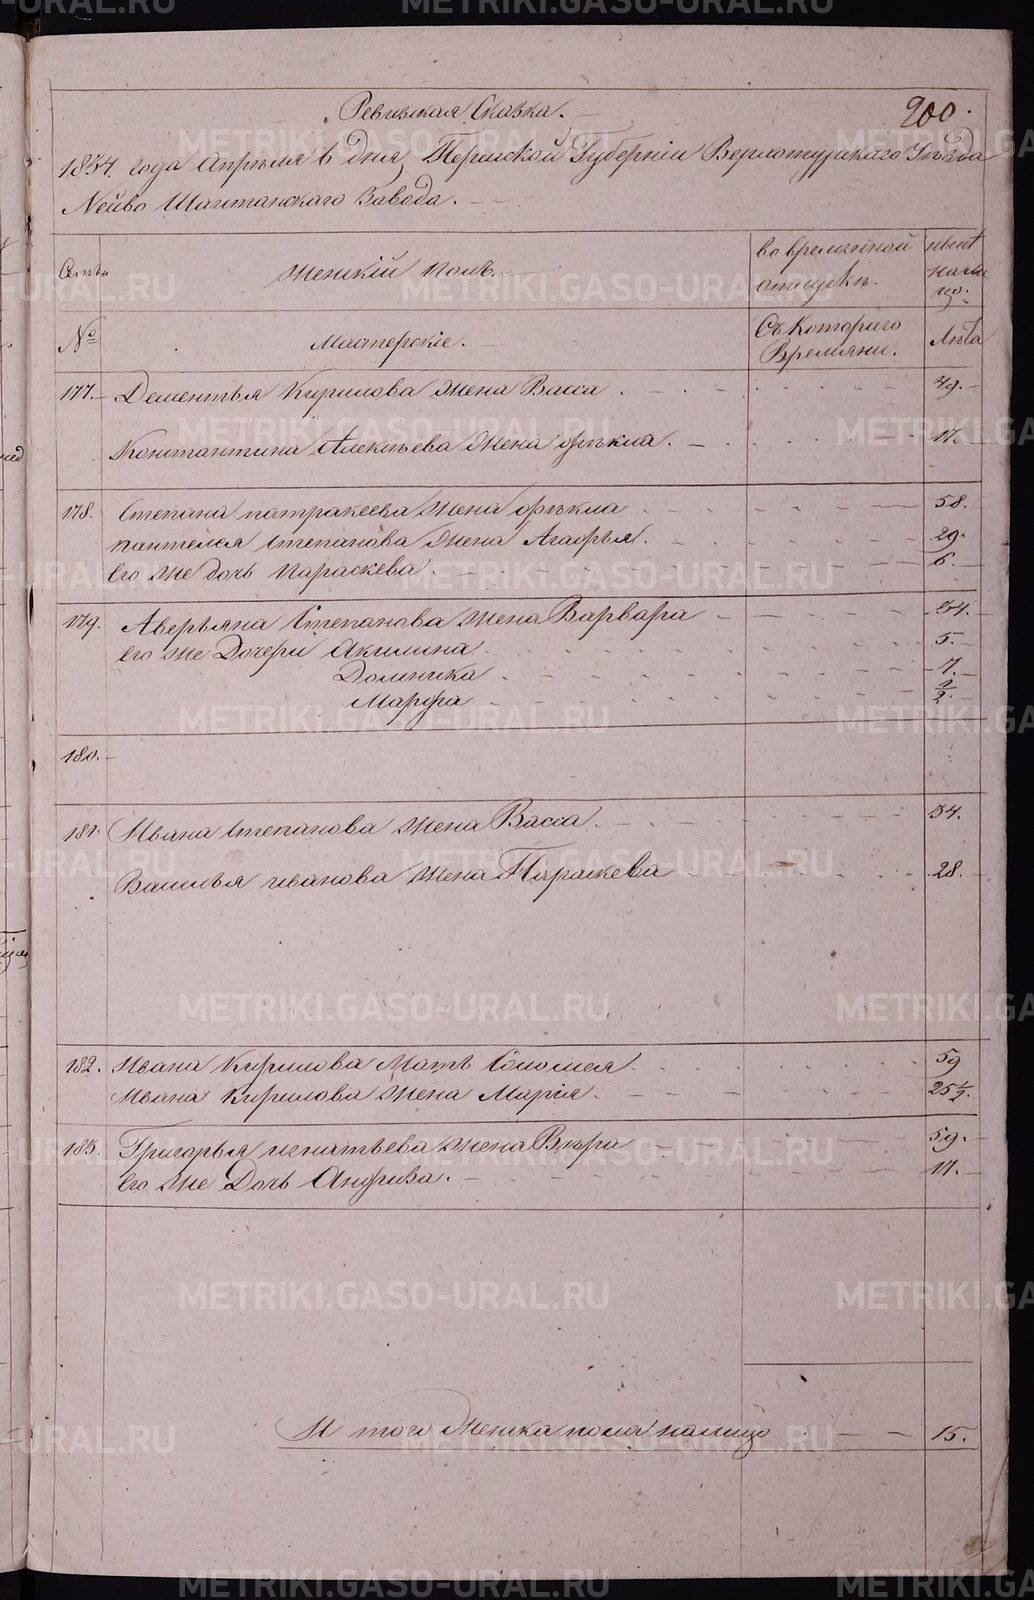 Ревизская Сказка.
200.
1834. года Апреля 6 дня, Пермской Губерніи Верхотурскаго Уезда
Нейво Шайтанскаго Завода.
Семьи
женскій полъ.
во временной отлучкѣ.
нынѣ налицо.
№
Мастерскіе.
Съ Котораго Времяни.
Лѣта
177. Дементья Кирилова жена Васса 49.
Константина Алексѣева жена Фёкла. 17.
178. Степана патракеева жена Фёкла 58.
пантелея степанова жена Агафья. 29.
его же дочь параскева. 6.
179. Аверьяна Степанова жена Варвара 34.
его же Дочери Акилина. 5.
Домника 7.
Марфа 1/2.
180.
181. Ивана степанова жена Васса. 54.
Василья иванова жена Параскева 28.
182. Ивана Кирилова Мать Соломея 59
Ивана Кирилова жена Марія. 25 1/2.
183. Григорья игнатьева жена Вѣра 59.
его же Дочь Анфиза. 17.
И того женска пола налицо 15.
METRIKI.GASO-URAL.RU